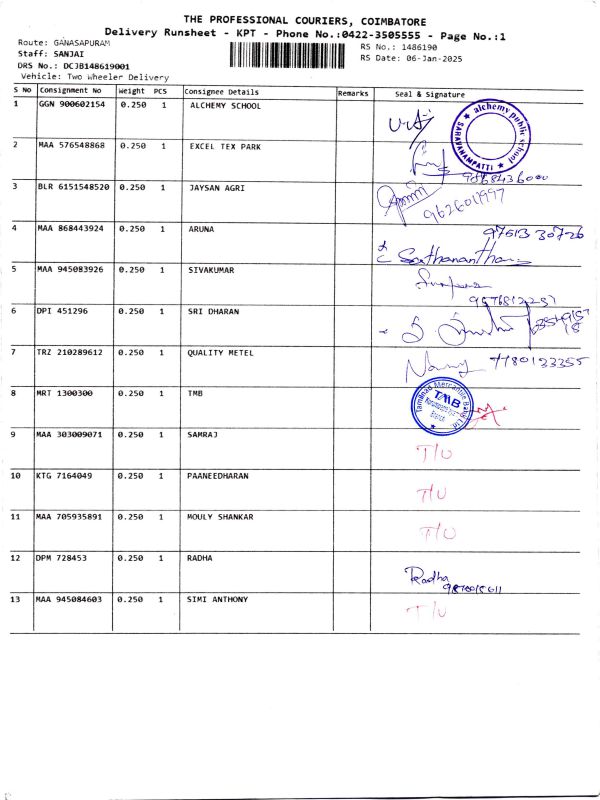 THE PROFESSIONAL COURIERS, COIMBATORE
Delivery Runsheet - KPT - Phone No.:0422-3505555 - Page No.:1
Route: GANASAPURAM
Staff: SANJAI
DRS No.: DCJB148619001
Vehicle: Two Wheeler Delivery
RS No.: 1486190
RS Date: 06-Jan-2025
S No Consignment No Weight PCS Consignee Details Remarks Seal & Signature
1 GGN 900602154 0.250 1 ALCHEMY SCHOOL
alchemy public school SARAVANAMPATTI
2 MAA 576548868 0.250 1 EXCEL TEX PARK
3 BLR 6151548520 0.250 1 JAYSAN AGRI
4 MAA 868443924 0.250 1 ARUNA
5 MAA 945083926 0.250 1 SIVAKUMAR
6 DPI 451296 0.250 1 SRI DHARAN
7 TRZ 210289612 0.250 1 QUALITY METEL
8 MRT 1300300 0.250 1 TMB
Tamilnad Mercantile Bank Ltd. TMB
9 MAA 303009071 0.250 1 SAMRAJ T/U
10 KTG 7164049 0.250 1 PAANEEDHARAN T/U
11 MAA 705935891 0.250 1 MOULY SHANKAR T/U
12 DPM 728453 0.250 1 RADHA Radha
13 MAA 945084603 0.250 1 SIMI ANTHONY T/U